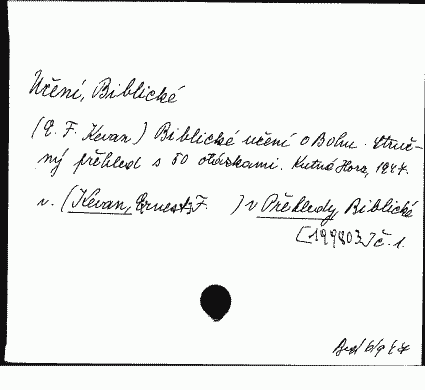 Učení, Biblické
(E. F. Kevan) Biblické učení o Bohu. Struč-
ný přehled s 50 otázkami. Kutná Hora, 1947.
v. (Kevan, Ernest F. ) v Přehledy Biblické
[199803] č. 1.